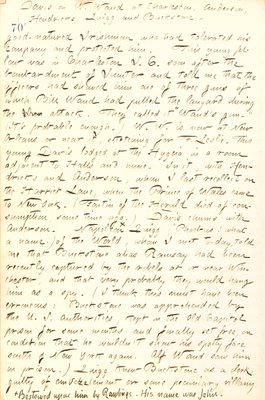 Davis on W. Waud at Charleston. Anderson.
Hendricks, Ligg and Buckstone.
70
good-natured Irishman who had tolerated his
company and protected him. This young fel-
low was in Charleston S. C. soon after the
bombardment of Sumter and told me that the
officers had showed him one of three guns of
which Bill Waud had pulled the lanyard during
the attack. They called it Waud's gun.
It's probable enough. W. W. is now at New
Orleans or near it, sketching for F. Leslie. This
young Davis lodges at the Hygeia in a room
adjacent to Halls and mine. In it with
and Anderson, whom I last recollect on
the Harriet Lane, when the Prince of Wales came
to New York. (of the Herald died of con-
sumption some time ago.) Davis chums with
Anderson. Napoleon Ligg (what
a name!) of the World, whom I met to-day, told
me that Buckstone alias Ramsay had been
recently captured by the rebels at or near Win-
chester and that very probably they would hang
him as a spy. I think this must have been
erroneous; Buckstone was apprehended by
the U. S. Authorities kept in the old Capitol
prison for some months and finally set free on
condition that he wouldn't show his ugly face
south of New York again. Alf Waud saw him
in prison.) Ligg knew Buckstone as a clerk
guilty of embezzlement or some pecuniary villainy
+ Bestowed upon him by Rawlings. His name was John.